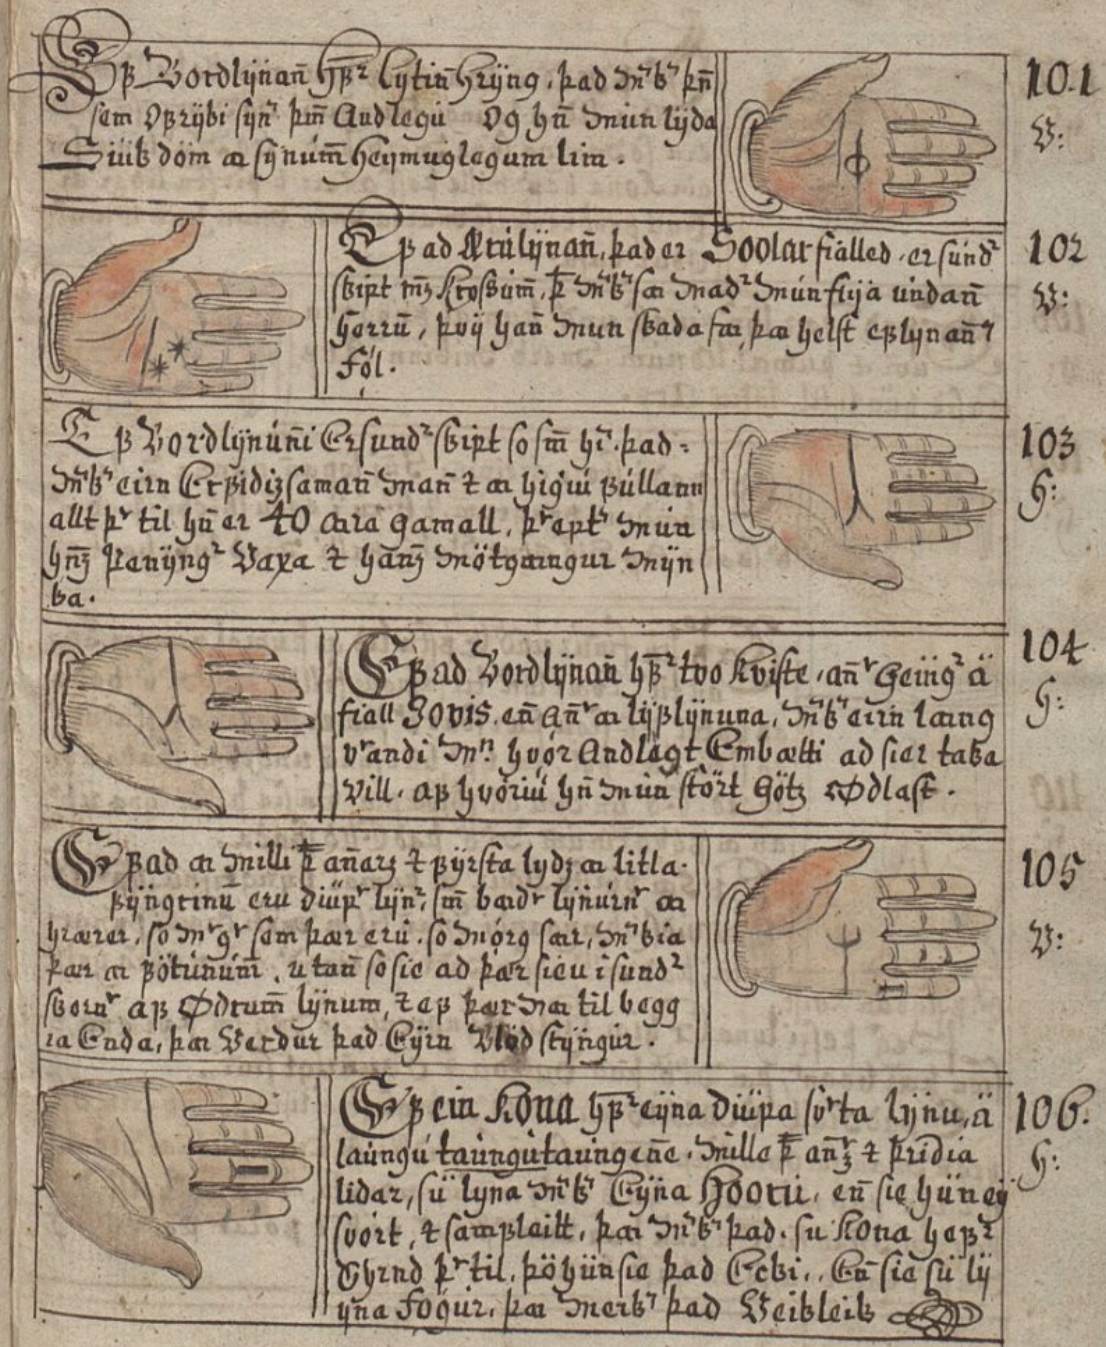 Ef Bordlÿnan hefr lÿtin hrÿng, þad mrkr þn
sem Ofrÿki sÿnr þm Andlegu Og hn mun lÿda
Siúkdöm a sÿnum heÿmuglegum lim.
101
V:
Ef ad Ærulÿnan, þad er Soolar fialled, er sundr
skipt mz krossum, þ mrkr sa madr mun flÿa undan
herrum, þvÿ han mun skada fa, þa helst ef lÿnan er
föl.
102
V:
Ef Bordlÿnunni Er sundr skipt so sm hr. þad
mrkr eirn Erfidiz saman mann & a higúú fullann
allt þr til hn er 40 ara gamall, þr eptr mun
hnz Penÿngr Vaxa & hanz mötgaungur mÿn
ka.
103
H:
Ef ad Bordlÿnan hefr tvo kviste, anr Geingr ä
fiall Jovis, en Anr a lÿflÿnuna, mrkr eirn laung
vrandi mn hvör Andlegt Embætti ad sier taka
vill. af hvöriu hn mun stört Götz Ødlast.
104
H:
Ef ad a milli þ annarz & fÿrsta lydz a litla
fÿngrinu eru diúpr lÿnr, sm bordr lÿnurnr a
hrærer, so mrgr sem þær eru. so mörg sar, mrkia
þær a fötunum, utan so sie ad þær sieu i sundr
skornr af Ødrum lÿnum, & ef þær na til begg
ia Enda, þa Verdur þad Eÿrn Blöd stÿngur.
105
V:
Ef ein Kona hefr eÿna diúpa svrta lÿnu, ä
laungu taungutaungenne, mille þ anrz & þridia
lidar, sú lÿna mrkr Eÿna Hooru, en sie hún eÿ
svört, & samfleitt, þa mrkr þad. su Kona hefr
Gyrnd þr til, þö hún sie þad Ecki,. En sie sú lÿ
ÿna fögur, þa merkr þad Veikleik
106.
H: